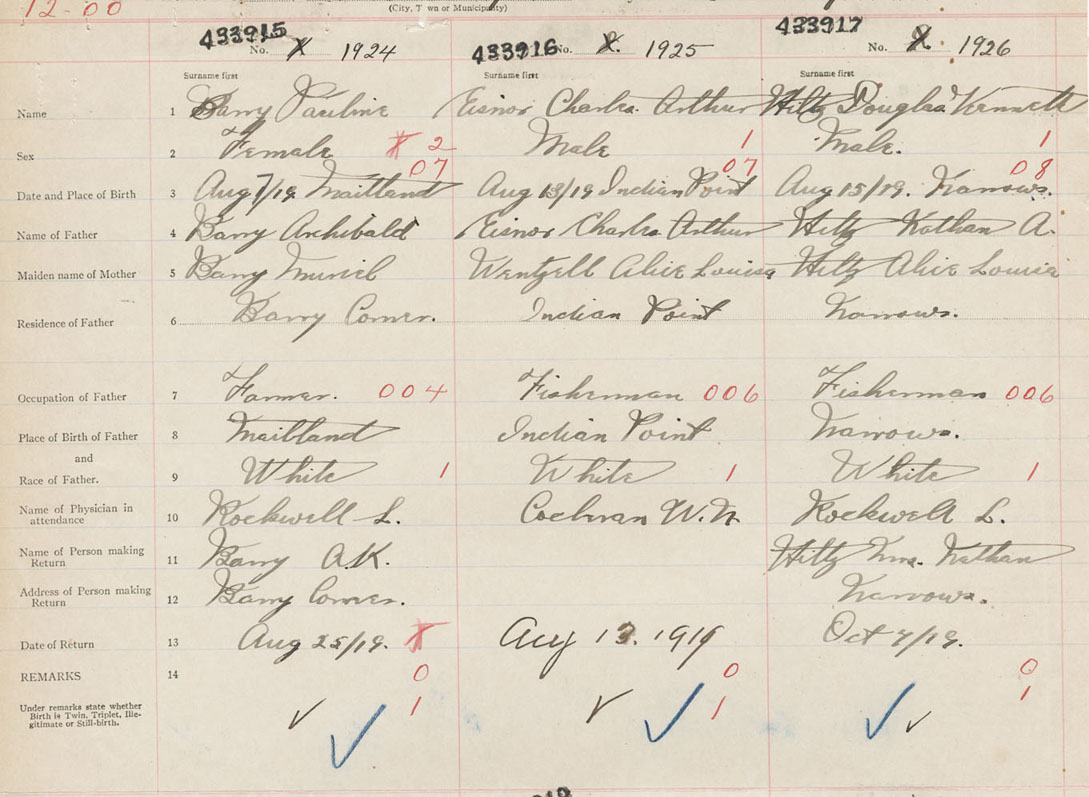 12.00
(City, Town or Municipality)
433915 433916 433917
No. X 1924 No. X 1925 No. X 1926
Surname first Surname first Surname first
Name 1 Barry Pauline Eisnor Charles Arthur Hiltz Douglas Kenneth
Sex 2 Female X 2 Male 1 Male. 1
07 07 08
Date and Place of Birth 3 Aug 7/19 Maitland Aug 13/19 Indian Point Aug 15/19. Narrows.
Name of Father 4 Barry Archibald Eisnor Charles Arthur Hiltz Nathan A.
Maiden name of Mother 5 Barry Muriel Wentzell Alice Louisa Hiltz Alice Louisa
Residence of Father 6 Barry Corner. Indian Point Narrows.
Occupation of Father 7 Farmer. 004 Fisherman 006 Fisherman 006
Place of Birth of Father 8 Maitland Indian Point Narrows.
and
Race of Father. 9 White 1 White 1 White 1
Name of Physician in attendance 10 Rockwell L. Cochran W.N. Rockwell L.
Name of Person making Return 11 Barry A.K. Hiltz Mrs. Nathan
Address of Person making Return 12 Barry Corner. Narrows.
Date of Return 13 Aug 25/19. X Aug 13. 1919 Oct 7/19.
REMARKS 14 0 0 0
Under remarks state whether 1 1 1
Birth is Twin, Triplet, Ille-
gitimate or Still-birth.